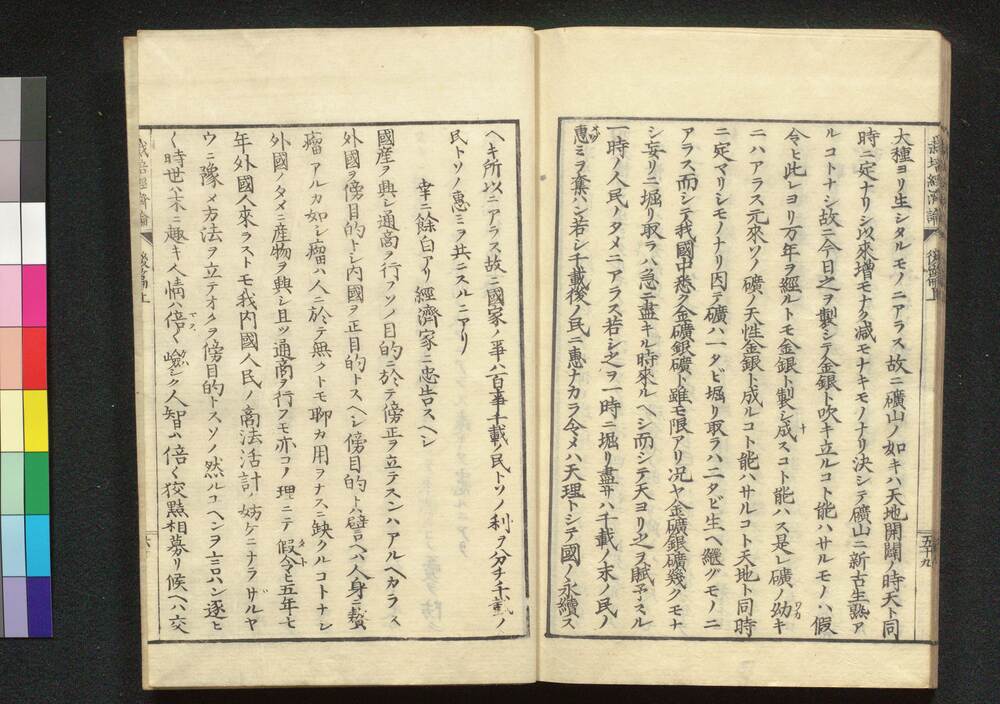 大種ヨリ生シタルモノニアラス故ニ礦山ノ如キハ天地開闢ノ時天ト同
時ニ定ナリシ以來増モナク減モナキモノナリ決シテ礦山ニ新古生熟ア
ルコトナシ故ニ今日之ヲ製シテ金銀ト吹キ立ルコト能ハサルモノハ假
令ヒ此レヨリ万年ヲ經ルトモ金銀ト製シ成スコト能ハス是レ礦ノ幼キ
ニハアラス元來ソノ礦ノ天性金銀ト成ルコト能ハサルコト天地ト同時
ニ定マリシモノナリ因テ礦ハ一タビ堀リ取ラハ二タビ生ヘ繼グモノニ
アラス而シテ我國中悉ク金礦銀礦ト雖モ限アリ况ヤ金礦銀礦幾クモナ
シ妄リニ堀リ取ラハ急ニ盡キル時來ルヘシ而シテ天ヨリ之ヲ賦予スル
一時ノ人民ノタメニアラス若シ之ヲ一時ニ堀リ盡サハ千載ノ末ノ民ノ
惠ミヲ奪ハン若シ千載後ノ民ニ惠ナカラ令メハ天理トシテ國ノ永續ス
ヘキ所以ニアラス故ニ國家ノ事ハ百事千載ノ民トソノ利ヲ分チ千載ノ
民トソノ惠ミヲ共ニスルニアリ
幸ニ餘白アリ經濟家ニ忠告スヘシ
國産ヲ興シ通商ヲ行フソノ目的ニ於テ傍正ヲ立テスンハアルヘカラス
外國ヲ傍目的トシ内國ヲ正目的トスヘシ傍目的トハ譬ヘハ人身ニ贅
瘤アルカ如シ瘤ハ人ニ於テ無クトモ聊カ用ヲナスニ缺クルコトナシ
外國ノタメニ産物ヲ興シ且ツ通商ヲ行フモ亦コノ理ニテ假令ヒ五年七
年外國人來ラストモ我内國人民ノ商法活計ノ妨ケニナラザルヤ
ウニ豫メ方法ヲ立テオクヲ傍目的トスソノ然ルユヘンヲ言ハン逐ヒ
〱時世ハ末ニ趣キ人情ハ倍〱嶮シク人智ハ倍〱狡黠相募リ候ヘハ交
栽培經濟論
後篇上
五十九